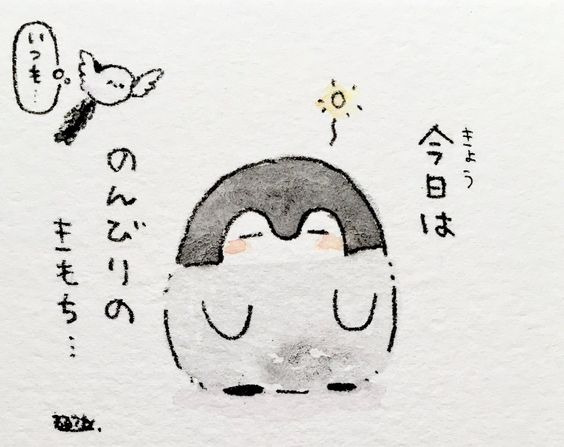 きょう
今日は
のんびりの
きもち…
いつも…